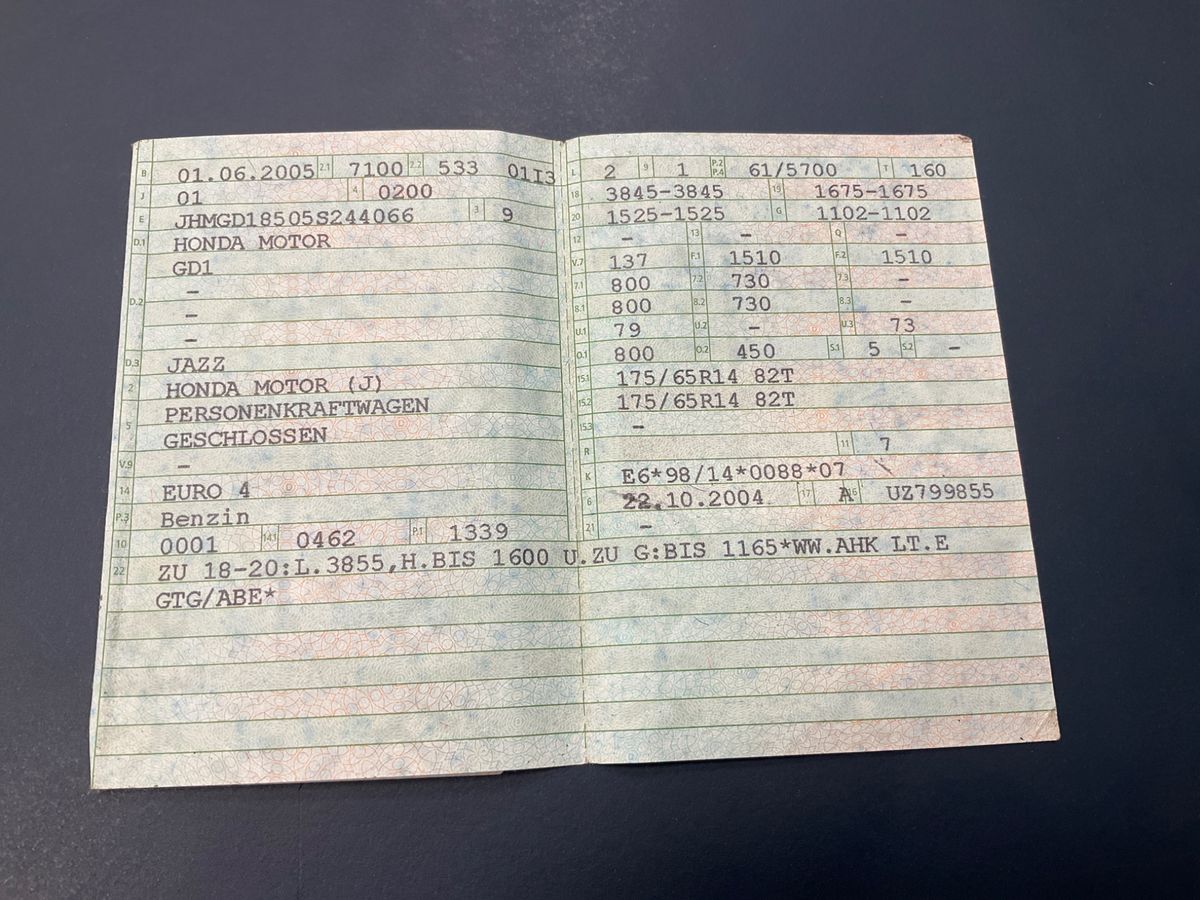 B 01.06.2005 2.1 7100 2.2 533 01I3
J 01 4 0200
E JHMGD18505S244066 3 9
D.1 HONDA MOTOR
GD1
–
D.2 –
–
D.3 JAZZ
2 HONDA MOTOR (J)
5 PERSONENKRAFTWAGEN
GESCHLOSSEN
V.9 –
14 EURO 4
P.3 Benzin
10 0001 14.1 0462 P.1 1339
22 ZU 18-20:L.3855,H.BIS 1600 U.ZU G:BIS 1165*WW.AHK LT.E
GTG/ABE*
L 2 9 1 P.2 P.4 61/5700 T 160
18 3845-3845 19 1675-1675
20 1525-1525 G 1102-1102
12 – 13 – Q –
V.7 137 F.1 1510 F.2 1510
7.1 800 7.2 730 7.3 –
8.1 800 8.2 730 8.3 –
U.1 79 U.2 – U.3 73
O.1 800 O.2 450 S.1 5 S.2 –
15.1 175/65R14 82T
15.2 175/65R14 82T
15.3 –
R 11 7
K E6*98/14*0088*07
6 22.10.2004 17 A 16 UZ799855
21 –